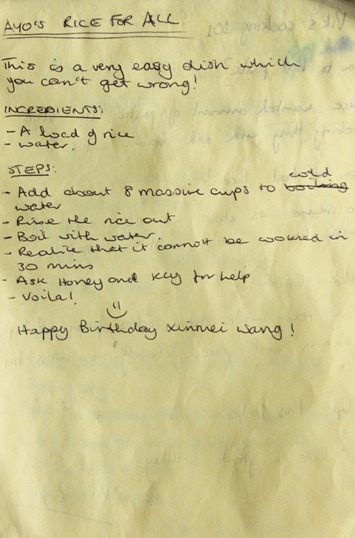 AYO'S RICE FOR ALL
This is a very easy dish which
you can't get wrong!
INGREDIENTS:
- A load of rice
- water.
STEPS:
cold
- Add about 8 massive cups to boiling
water
- Rinse the rice out
- Boil with water.
- Realise that it cannot be cooked in
30 mins
- Ask Honey and Kay for help
- Voila!
Happy Birthday Xinmei Wang!